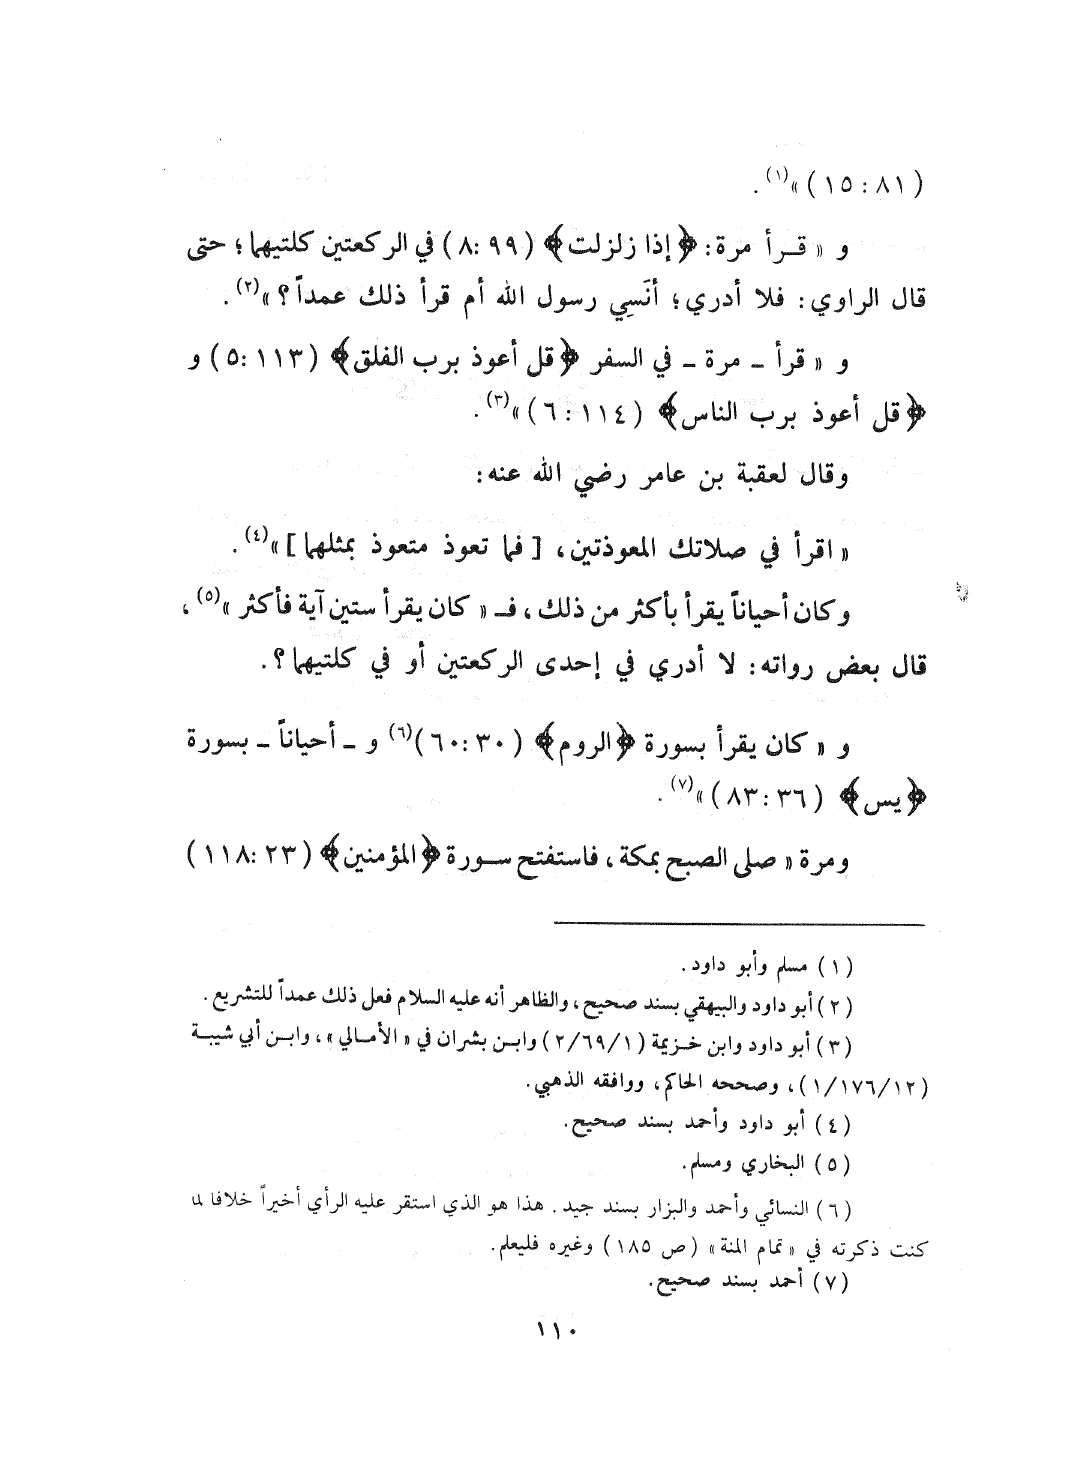 (١٥:٨١)»(١).
و «قـرأ مرة: ﴿إذا زلزلت﴾ (٨:٩٩) في الركعتين كلتيهما؛ حتى
قال الراوي: فلا أدري؛ أنَسِي رسول الله أم قرأ ذلك عمداً؟»(٢).
و «قرأ - مرة - في السفر ﴿قل أعوذ برب الفلق﴾ (٥:١١٣) و
﴿قل أعوذ برب الناس﴾ (٦:١١٤)»(٣).
وقال لعقبة بن عامر رضي الله عنه:
«اقرأ في صلاتك المعوذتين، [فما تعوذ متعوذ بمثلهما]»(٤).
وكان أحياناً يقرأ بأكثر من ذلك، فـ «كان يقرأ ستين آية فأكثر»(٥)،
قال بعض رواته: لا أدري في إحدى الركعتين أو في كلتيهما؟.
و «كان يقرأ بسورة ﴿الروم﴾ (٦٠:٣٠)(٦) و - أحياناً - بسورة
﴿يس﴾ (٨٣:٣٦)»(٧).
ومرة «صلى الصبح بمكة، فاستفتح سـورة ﴿المؤمنين﴾ (١١٨:٢٣)
(١) مسلم وأبو داود.
(٢) أبو داود والبيهقي بسند صحيح، والظاهر أنه عليه السلام فعل ذلك عمداً للتشريع.
(٣) أبو داود وابن خـزيمة (٢/٦٩/١) وابـن بشران في «الأمـالي»، وابـن أبي شيبـة
(١/١٧٦/١٢)، وصححه الحاكم، ووافقه الذهبي.
(٤) أبو داود وأحمد بسند صحيح.
(٥) البخاري ومسلم.
(٦) النسائي وأحمد والبزار بسند جيد. هذا هو الذي استقر عليه الرأي أخيراً خلافا لما
كنت ذكرته في «تمام المنة» (ص ١٨٥) وغيره فليعلم.
(٧) أحمد بسند صحيح.
١١٠